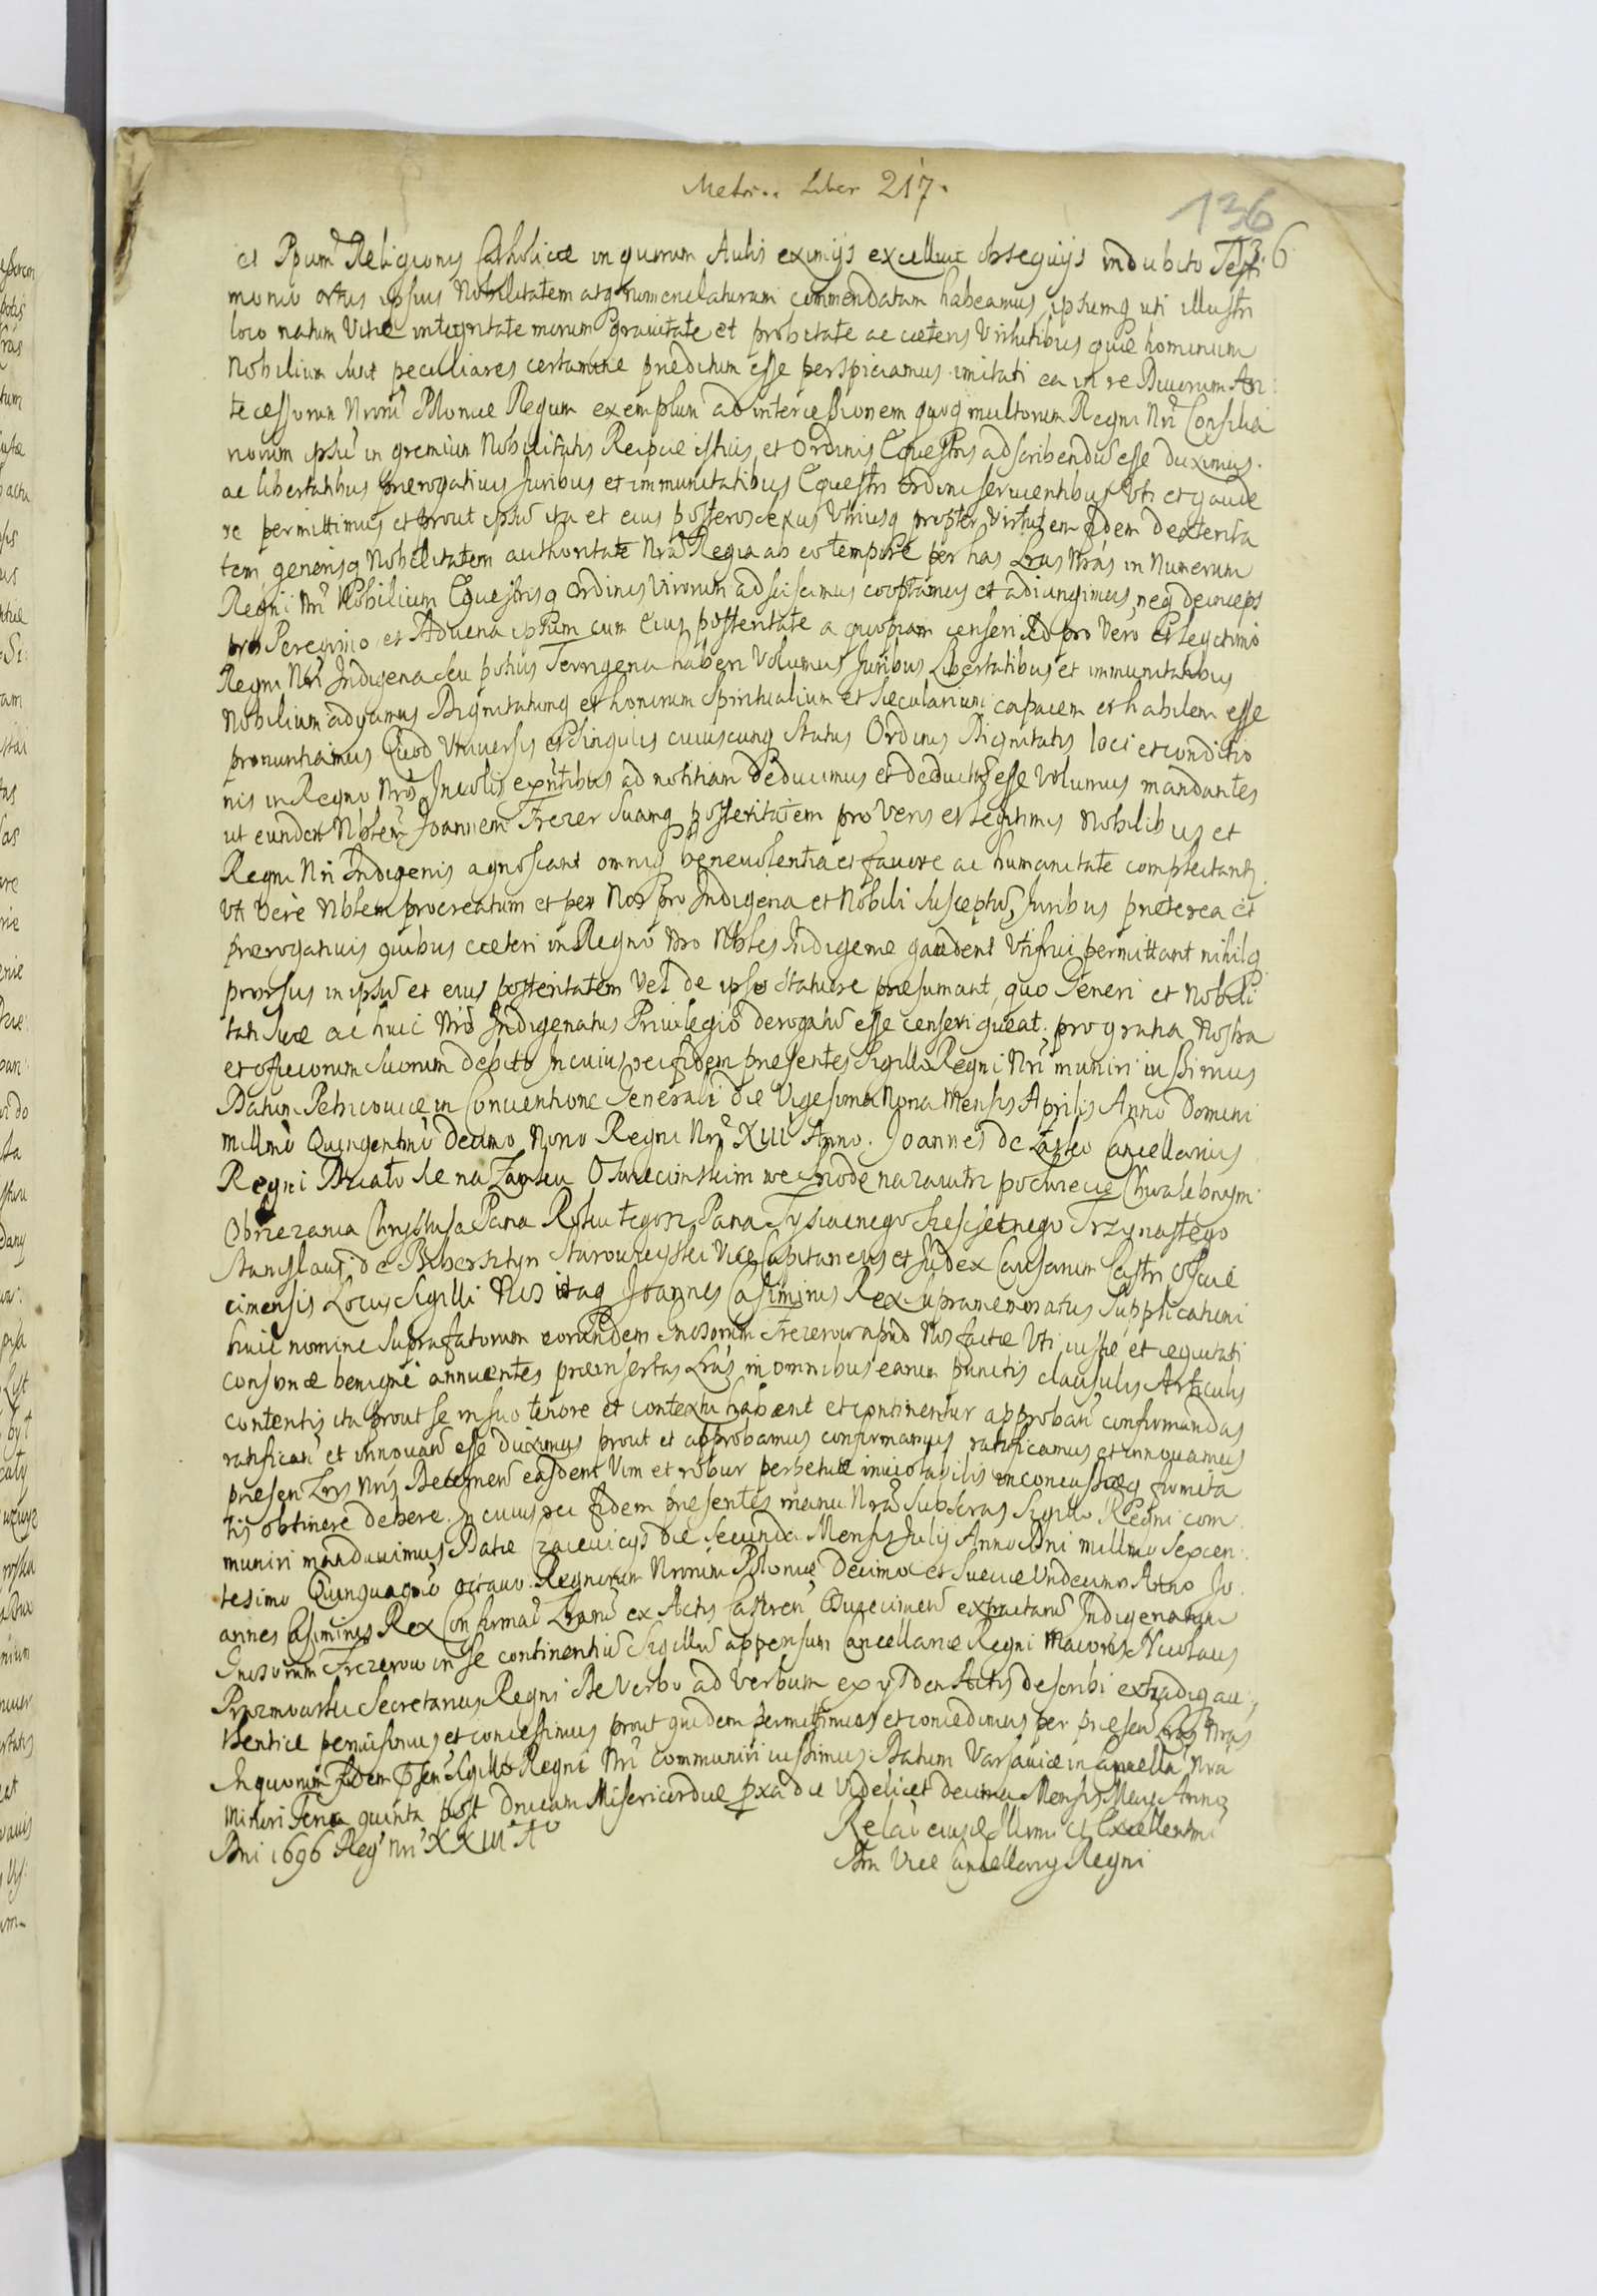 Metr.. Liber 217.
136
136
et Ppum Religionis Catholicæ in quorum Aulis eximijs excelluit obsequijs indubito Testi
monio ortus ipsius Nobilitatem atq nomenclaturam commendatam habeamus, ipsumq uti illustri
loco natum Vitæ integritate morum gravitate et probitate ac cæteris Virtutibus quæ hominum
Nobilium sunt peculiares præditum esse perspiciamus imitati ea in re Divorum An:
tecessorum Nrorū Poloniæ Regum exemplum ad intercessionem quoq multorum Regni Nri Consilia
riorum ipsū in gremium Nobilitatis Reipcæ istius et Ordinis Equestris adscribendū esse duximus.
ac libertatibus prerogativis Juribus et immunitatibus Equestri ordini servientibus Uti et gaude
re permittimus et prout ipsū ita et eius posteros sexus Utriusq propter Virtutem fidem dexterita
tem, generisq Nobilitatem authoritate Nra Regia ab eo tempore per has Lras Nras in Numerum
Regni Nri Nobilium Equestrisq Ordinis Virorum adsciscimus cooptamus et adiungimus, neq deinceps
pro Peregrino et Advena ipsum cum Eius posteritate a quopiam censeri sed pro Vero et legitimo
Regni Nri Indigena seu potius Terrigena haberi Volumus Juribus Libertatibus et immunitatibus
Nobilium Dignitatumq et honorum Spiritualium et Sæcularium capacem et habilem esse
pronuntiamus Quod Universis et Singulis cuiuscunq Status Ordinis Dignitatis loci et conditio
nis in Regno Nro Incolis exntibus ad notitiam deducimus et deductū esse Volumus mandantes
ut eundem Nblem Joannem Frezer Suamq posteritatem pro Veris et legitimis Nobilibus et
Regni Nri Indigenis agnoscant omniq benevolentia et favore ac humanitate complectantʳ
Uti Vere Nblem procreatum et per Nos pro Indigena et Nobili Susceptū, Juribus præterea et
prerogativis quibus cæteri in Regno Nro Nbles Indigenæ gaudent Uti frui permittant nihilq
prorsus in ipsū et eius posteritatem Vel de ipso Statuere presumant, quo Generi et Nobili
tati Suæ ac huic Nro Indigenatus Privilegio derogatū esse censeri queat. pro gratia Nostra
et officiorum Suorum debito In cuius rei fidem presentes Sigillo Regni Nri muniri iussimus
Datum Petricoviæ in Conventione Generali die Vigesima Nona Mensis Aprilis Anno Domini
millmo Quingentmo decimo Nono Regni Nri XIII Anno. Joannes de Łasko Cancellarius
Regni Działo Se na Zamku Oswiecimskim we Srode nazaiutrz po Swiecie Chwalebnym
Obrzezania Chrystusa Pana Roku tegosz Pana Tysiącnego Szescsetnego Trzynastego
Stanislaus de Biberszteyn Starowieyski Vice Capitaneus et Judex Causarum Castri Osvie
cimensis Locus Sigilli Nos itaq Joannes Casimirus Rex Supramemoratus Supplicationi
huic nomine Suprafatorum eorundem Gnosorum Frezerow apud Nos factæ Uti iustæ et æquitati
consonæ benigne annuentes præinsertas Lras in omnibus earum punctis clausulis Articulis
contentis ita prout se in suo tenore et contextu habent et continentur approband confirmandas
ratificand et innovand esse duximus prout et approbamus confirmamus ratificamus et innovamus
presen Lris Nris Decernen easdem Vim et robur perpetuæ inviolabilis inconcussæq firmita
tis obtinere debere. In cuius rei fidem presentes manu Nra Subscras Sigillo Regni com
muniri mandavimus Datæ die Secunda Mensis Julij Anno Dni millmo Sexcen:
tesimo Quinquagmo octavo Regnorum Nrorum Poloniæ decimo et Sueciæ Undecimo Anno Jo
annes Casimirus Rex Confirmao Lrarū ex Actis Castren Osviecimen extractarū Indigenatum
Gnosorum Frezerow in se continentiū Sigillū appensum Cancellariæ Regni Maioris Nicolaus
Secretarius Regni De Verbo ad Verbum ex ijsdem Actis describi extradiq au:
thenticè permisimus et concessimus prout quidem permittimus et concedimus per presen Lras Nras
In quorum fidem Psen Sigillo Regni Nri communiri iussimus. Datum Varsaviæ in Cancella Nra
Minori Feria quinta post Dnicam Misericordiæ pxa die Videlicet decima Mensis Maij Anno
Dni 1696 Regⁱ Nri XXIII Aᵒ
Relao eiusd Illmi et Excellentmi
Dni Vice Cancellarij Regni